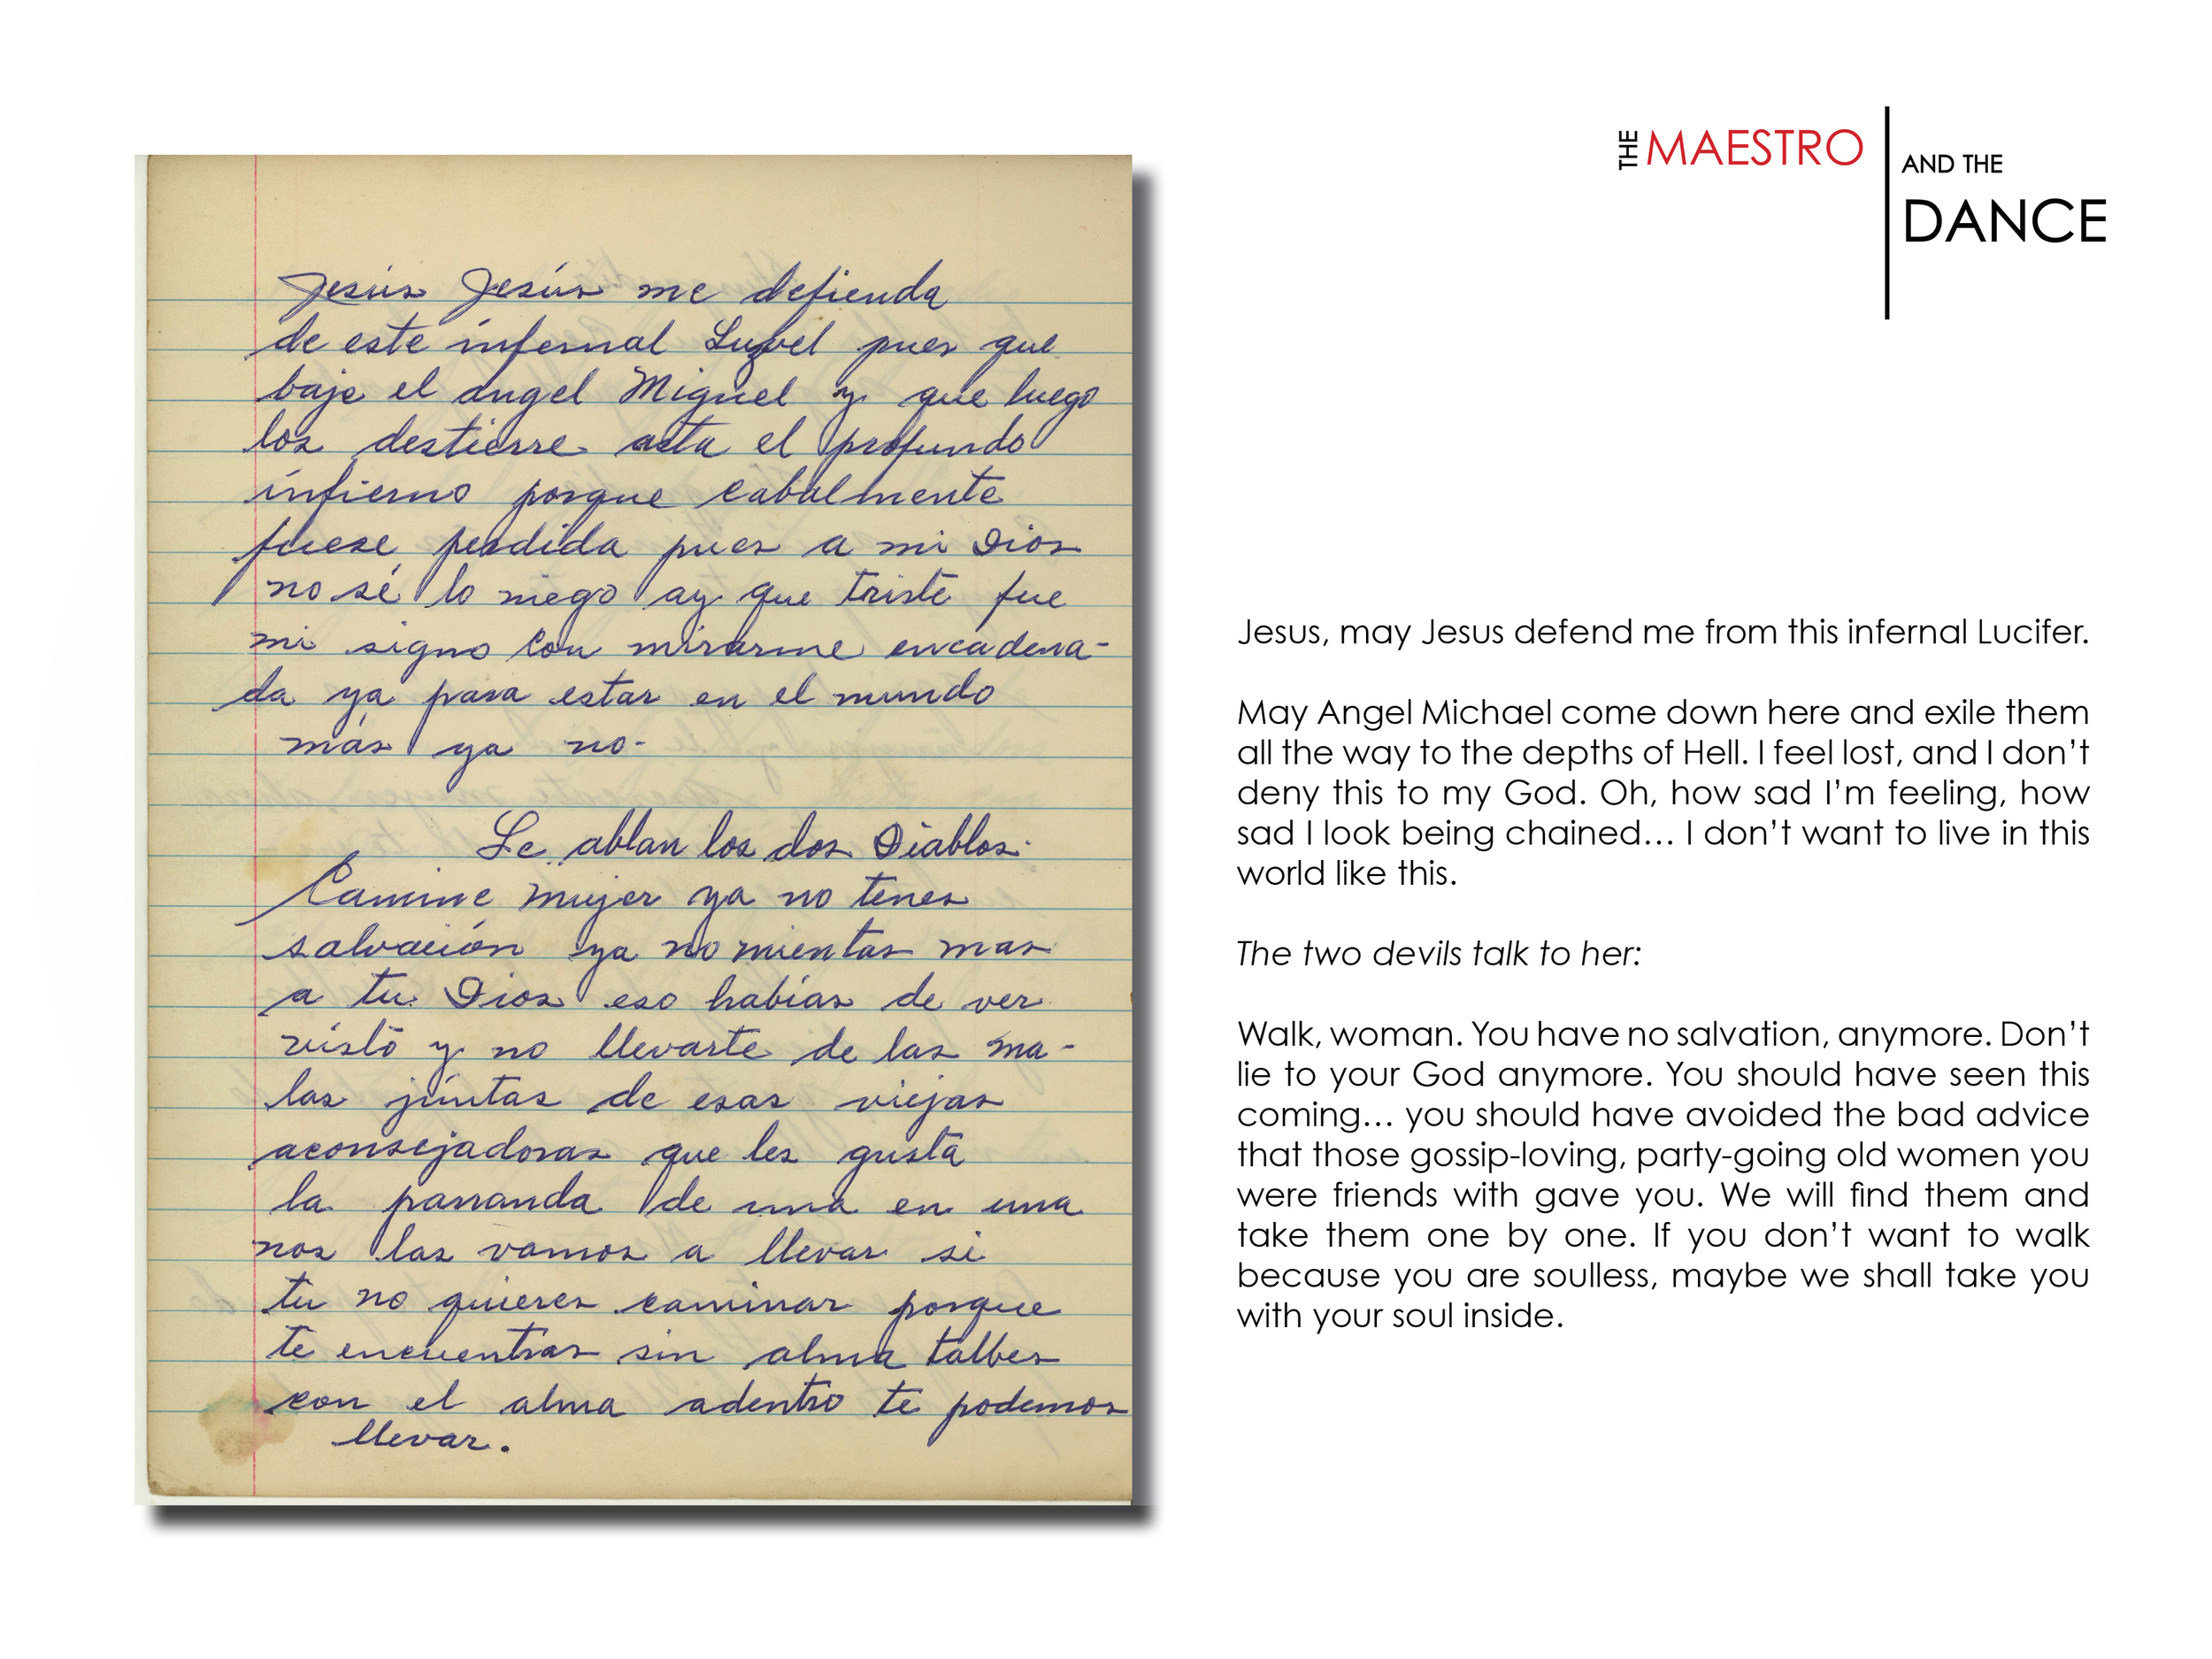 THE MAESTRO AND THE DANCE
Jesús Jesús me defienda
de este infernal Luzvel pues que
baje el angel Miguel y que luego
los destierre asta el profundo
infierno porque cabalmente
fuese perdida pues a mi Dios
no sé lo niego ay que triste fue
mi signo con mirarme encadena-
da ya para estar en el mundo
más ya no-
Le ablan los dos Diablos.
Camine mujer ya no tenes
salvación ya no mientas mas
a tu Dios eso habías de ver
visto y no llevarte de las ma-
las júntas de esas viejas
aconsejadoras que les gusta
la parranda de una en una
nos las vamos a llevar si
tu no quieres caminar porque
te encuentras sin alma talbes
con el alma adentro te podemos
llevar.
Jesus, may Jesus defend me from this infernal Lucifer.
May Angel Michael come down here and exile them
all the way to the depths of Hell. I feel lost, and I don't
deny this to my God. Oh, how sad I'm feeling, how
sad I look being chained... I don't want to live in this
world like this.
The two devils talk to her:
Walk, woman. You have no salvation, anymore. Don't
lie to your God anymore. You should have seen this
coming... you should have avoided the bad advice
that those gossip-loving, party-going old women you
were friends with gave you. We will find them and
take them one by one. If you don't want to walk
because you are soulless, maybe we shall take you
with your soul inside.